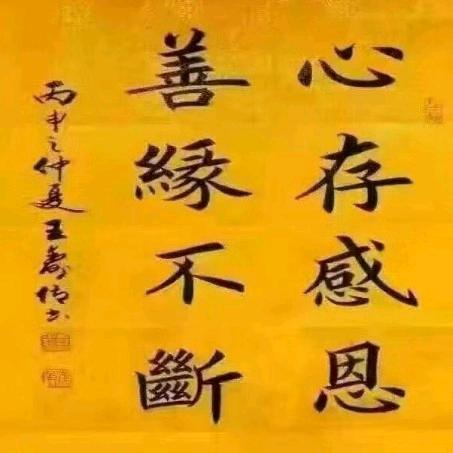 心存感恩
善緣不斷
丙申之仲夏王壽傳书